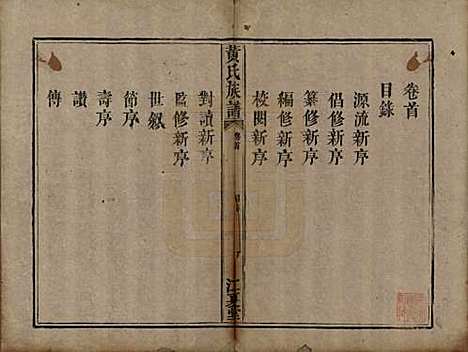 卷首
目錄
源流新序
倡修新序
纂修新序
編修新序
校閱新序
黃氏族譜
卷首
江夏堂
對讀新序
監修新序
世叙
節序
壽序
讚
傳